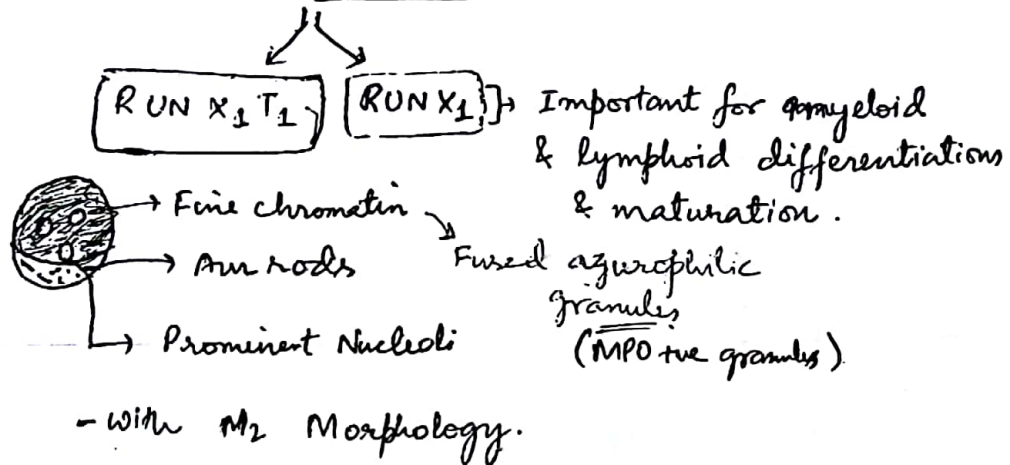 RUNX1T1 RUNX1 → Important for myeloid
& lymphoid differentiations
& maturation.
→ Fine chromatin
→ Aur rods Fused azurophilic
granules
→ Prominent Nucleoli (MPO +ve granules)
- With M2 Morphology.